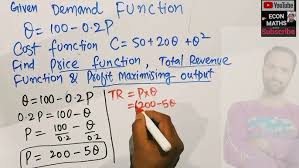 Given Demand Function
Q = 100 - 0.2P
Cost function C = 50 + 20Q + Q²
Find Price function, Total Revenue
Function & Profit Maximising output
Q = 100 - 0.2P
0.2P = 100 - Q
P = 100/0.2 - Q/0.2
P = 200 - 5Q
TR = P×Q
= (200 - 5Q
YouTube
ECON
MATHS